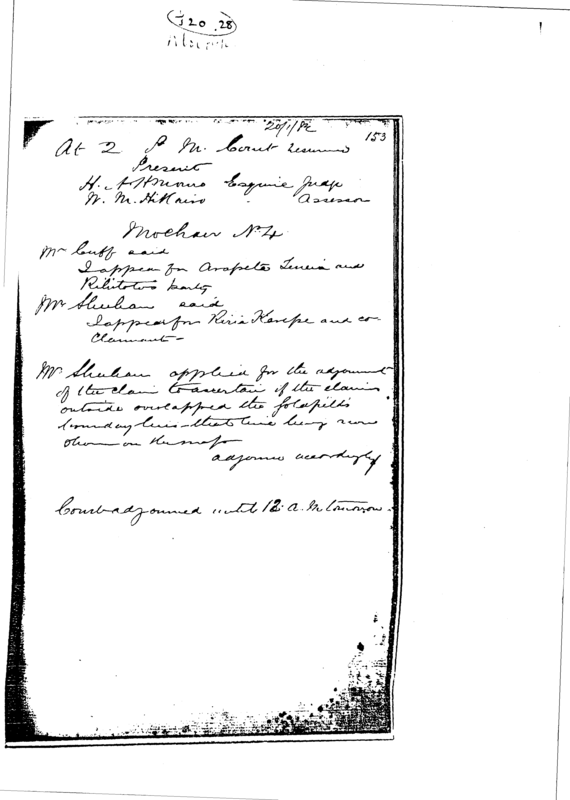 J 20.28
153
At 2 P. M. Court resumed
Present
H. Esquire Judge
W. M. Hikairo Assessor
Moehau No 4
Mr Cuff said
I appear for Arapeta and
party
Mr Sheehan said
I appear for Riria Karepe and co-
Claimant -
Mr Sheehan applied for the adjournment
of the claim to ascertain if the claims
outside overlapped the goldfields
boundary line - that line being now
shown on the map
adjourned accordingly
Court adjourned until 12 a. m tomorrow.